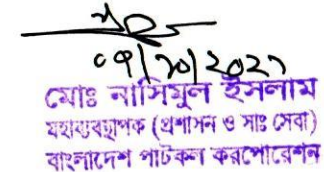 ০৭/১০/২০২১
মোঃ নাসিমুল ইসলাম
মহাব্যবস্থাপক (প্রশাসন ও সাঃ সেবা)
বাংলাদেশ পাটকল করপোরেশন